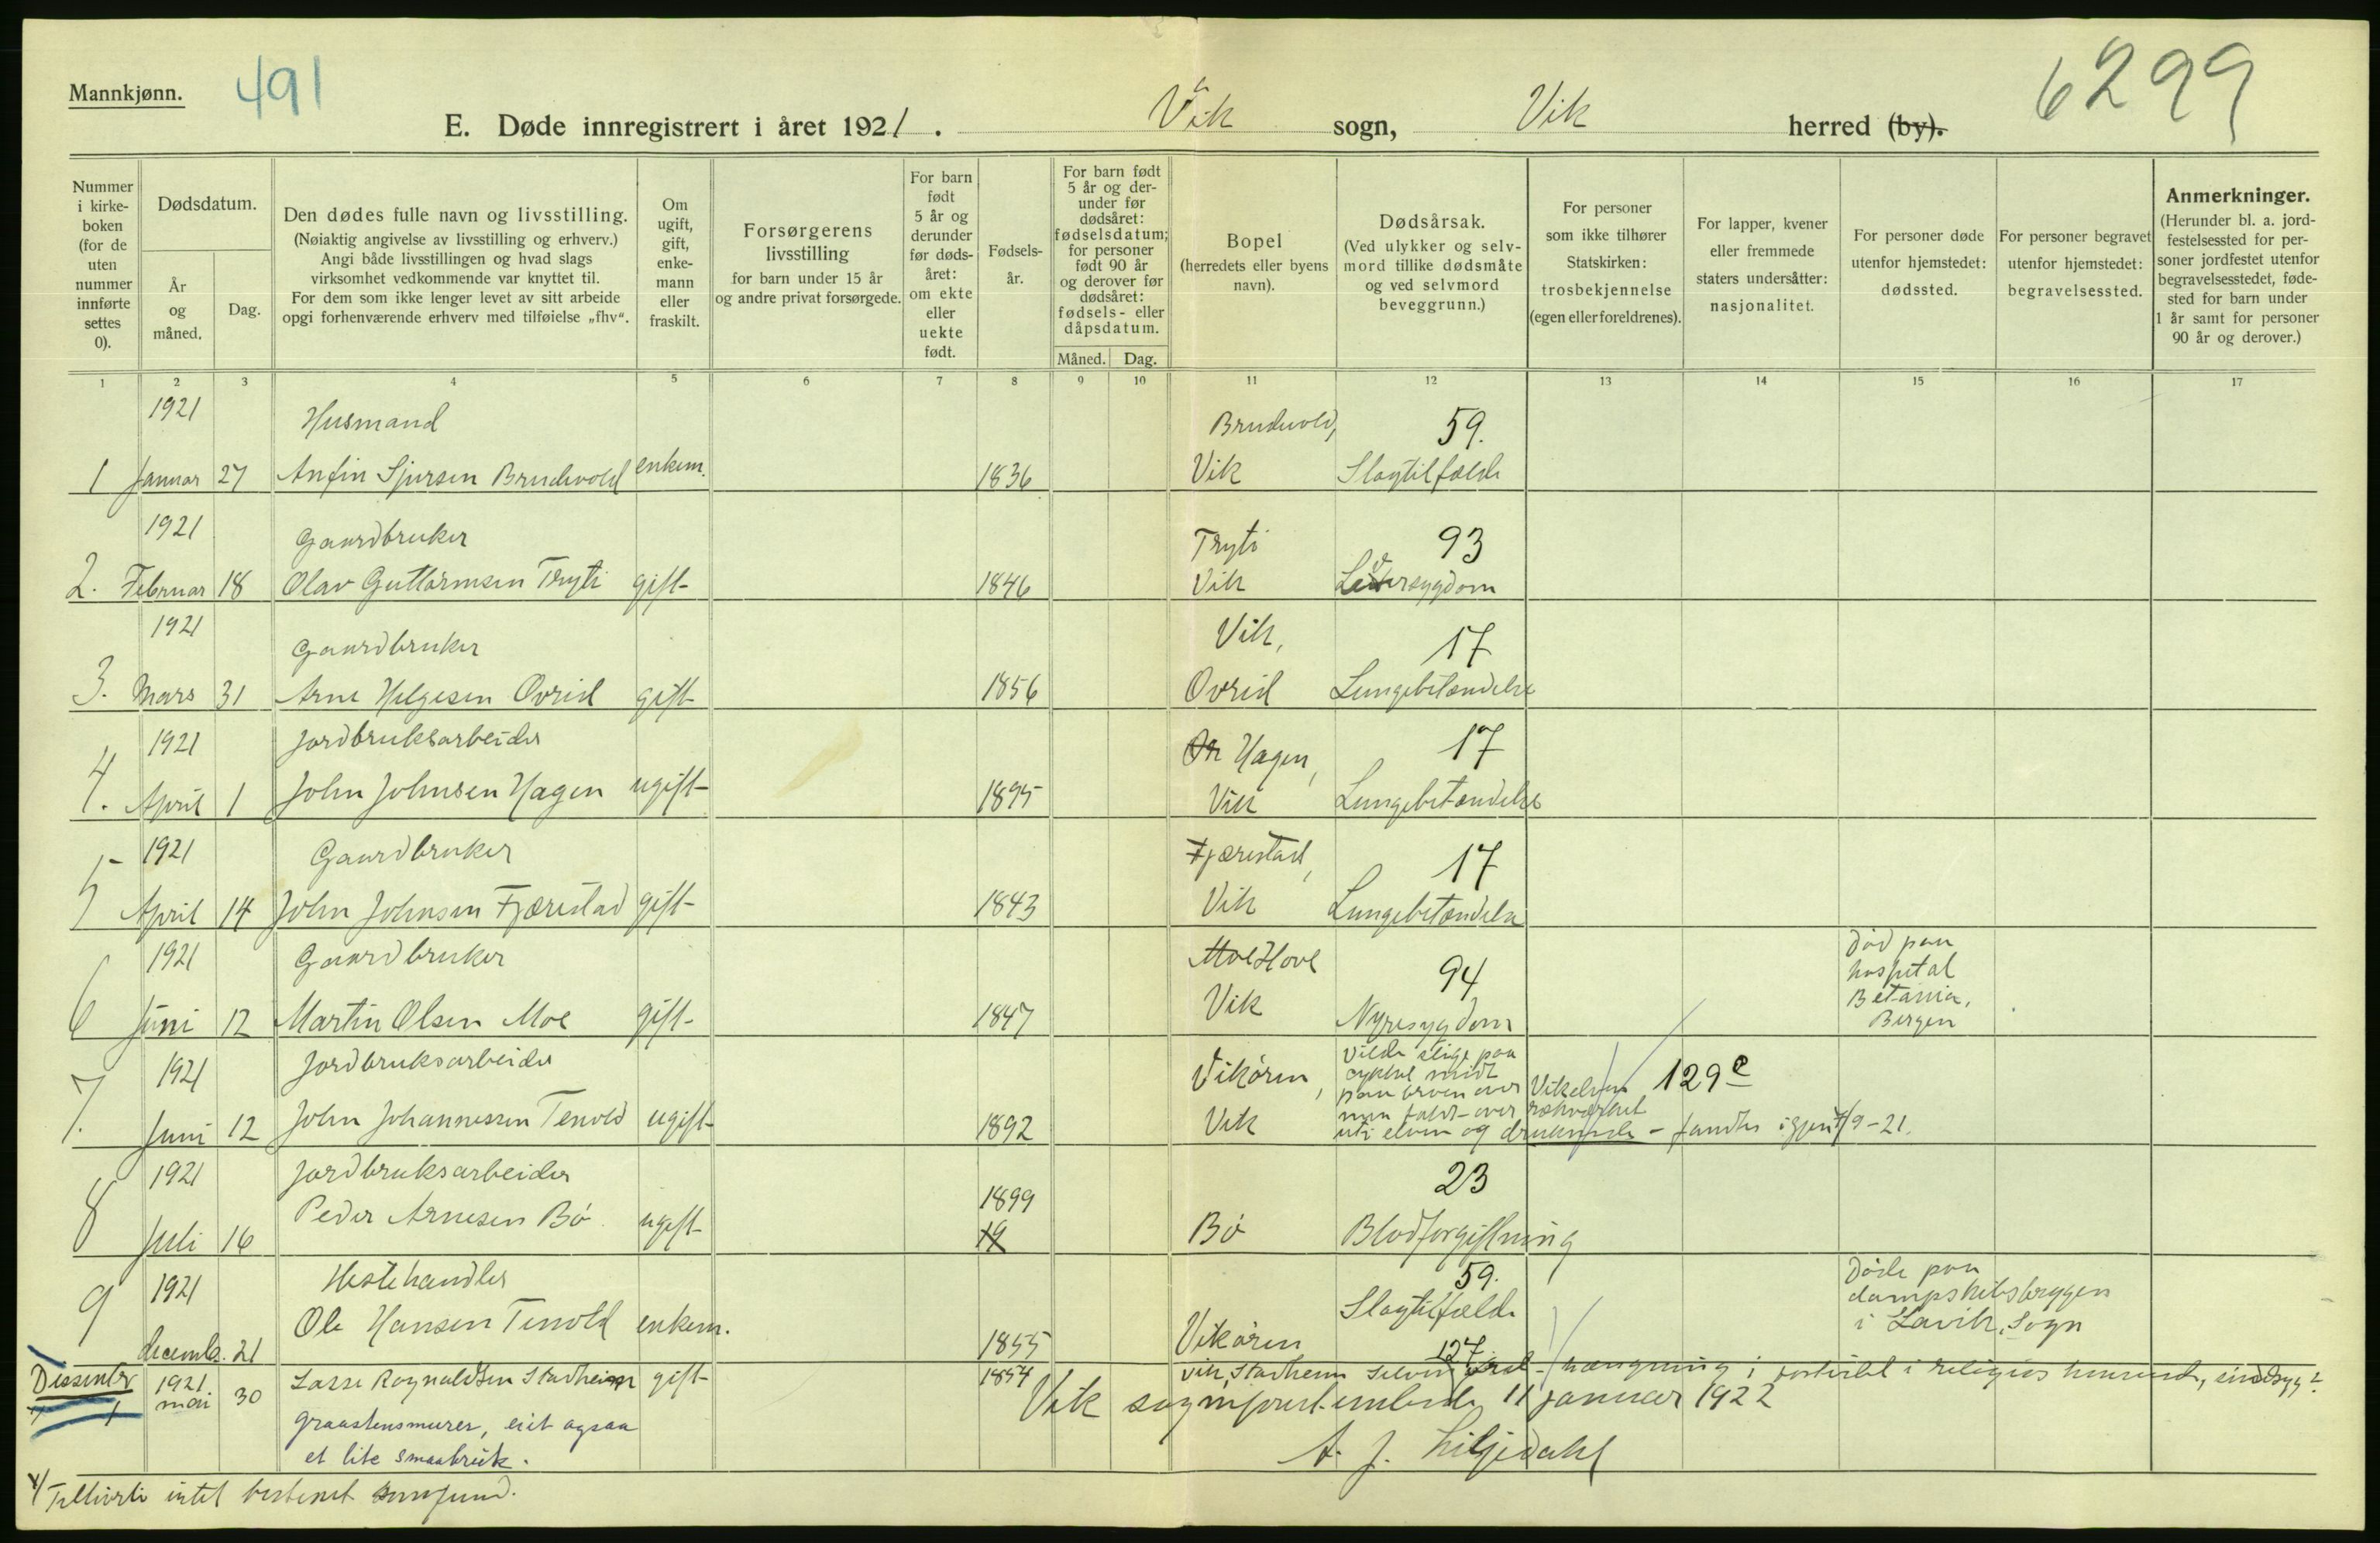 Mannkjønn.
491
6299
E. Døde innregistrert i året 1921. Vik sogn, Vik herred (by).
Nummer i kirke-boken (for de uten nummer innførte settes 0).
Dødsdatum.
År og måned.
Dag.
Den dødes fulle navn og livsstilling.
(Nøiaktig angivelse av livsstilling og erhverv.)
Angi både livsstillingen og hvad slags
virksomhet vedkommende var knyttet til.
For dem som ikke lenger levet av sitt arbeide
opgi forhenværende erhverv med tilføielse „fhv“.
Om ugift, gift, enke-mann eller fraskilt.
Forsørgerens livsstilling
for barn under 15 år
og andre privat forsørgede.
For barn født 5 år og derunder før døds-året: om ekte eller uekte født.
Fødsels-år.
For barn født 5 år og der-under før dødsåret: fødselsdatum; for personer født 90 år og derover før dødsåret: fødsels- eller dåpsdatum.
Måned. Dag.
Bopel
(herredets eller byens navn).
Dødsårsak.
(Ved ulykker og selv-mord tillike dødsmåte og ved selvmord beveggrunn.)
For personer som ikke tilhører Statskirken: trosbekjennelse (egen eller foreldrenes).
For lapper, kvener eller fremmede staters undersåtter: nasjonalitet.
For personer døde utenfor hjemstedet: dødssted.
For personer begravet utenfor hjemstedet: begravelsessted.
Anmerkninger.
(Herunder bl. a. jord-festelsessted for per-soner jordfestet utenfor begravelsesstedet, føde-sted for barn under 1 år samt for personer 90 år og derover.)
1 2 3 4 5 6 7 8 9 10 11 12 13 14 15 16 17
1921 Husmand Brudvold, 59.
1 Januar 27 Anfin Sjursen Brudevold enkem. 1836 Vik Slagtilfælde
1921 Gaardbruker Tryti 93
2. Februar 18 Olav Guttormsen Tryti gift 1846 Vik Leversygdom
1921 Gaardbruker Vik, 17
3. Mars 31 Arne Helgesen Ovrid gift 1856 Ovrid Lungebetændelse
1921 Jordbruksarbeider Hagen, 17
4. April 1 John Johnsen Hagen ugift 1895 Vik Lungebetændelse
1921 Gaardbruker Fjærestad, 17
5 April 14 John Johnsen Fjærestad gift 1843 Vik Lungebetændelse
1921 Gaardbruker Moe Hove 94 Død paa hospital
6 Juni 12 Martin Olsen Moe gift 1847 Vik Nyresygdom Betania, Bergen
1921 Jordbruksarbeider Vikøren, Vilde stige paa cykkel midt 129 e
paa broen over Vikelven
7. Juni 12 John Johannessen Tenold ugift 1892 Vik men faldt over rækverket
uti elven og druknede – fandtes igjen /9-21.
1921 Jordbruksarbeider 1899 23
8 Juli 16 Peder Arnesen Bø ugift 19 Bø Blodforgiftning
1921 Hestehandler 59. Døde paa
9 Ole Hansen Tenold enkem. Slagtilfælde dampskibsbryggen
decembr. 21 1855 Vikøren 127 i Lavik, Sogn
Dissenter 1921 mai 30 Lasse Ragnaldsen Stadheim gift 1854 Vik, Stadheim Selvmord – hængning i religiøs sindsyg?
graastensmurer, eiet ogsaa
et lite smaabruk.
Vik sogneprestembede 11 januar 1922
A. J. Liljedahl
Tilhørte intet bestemt samfund.